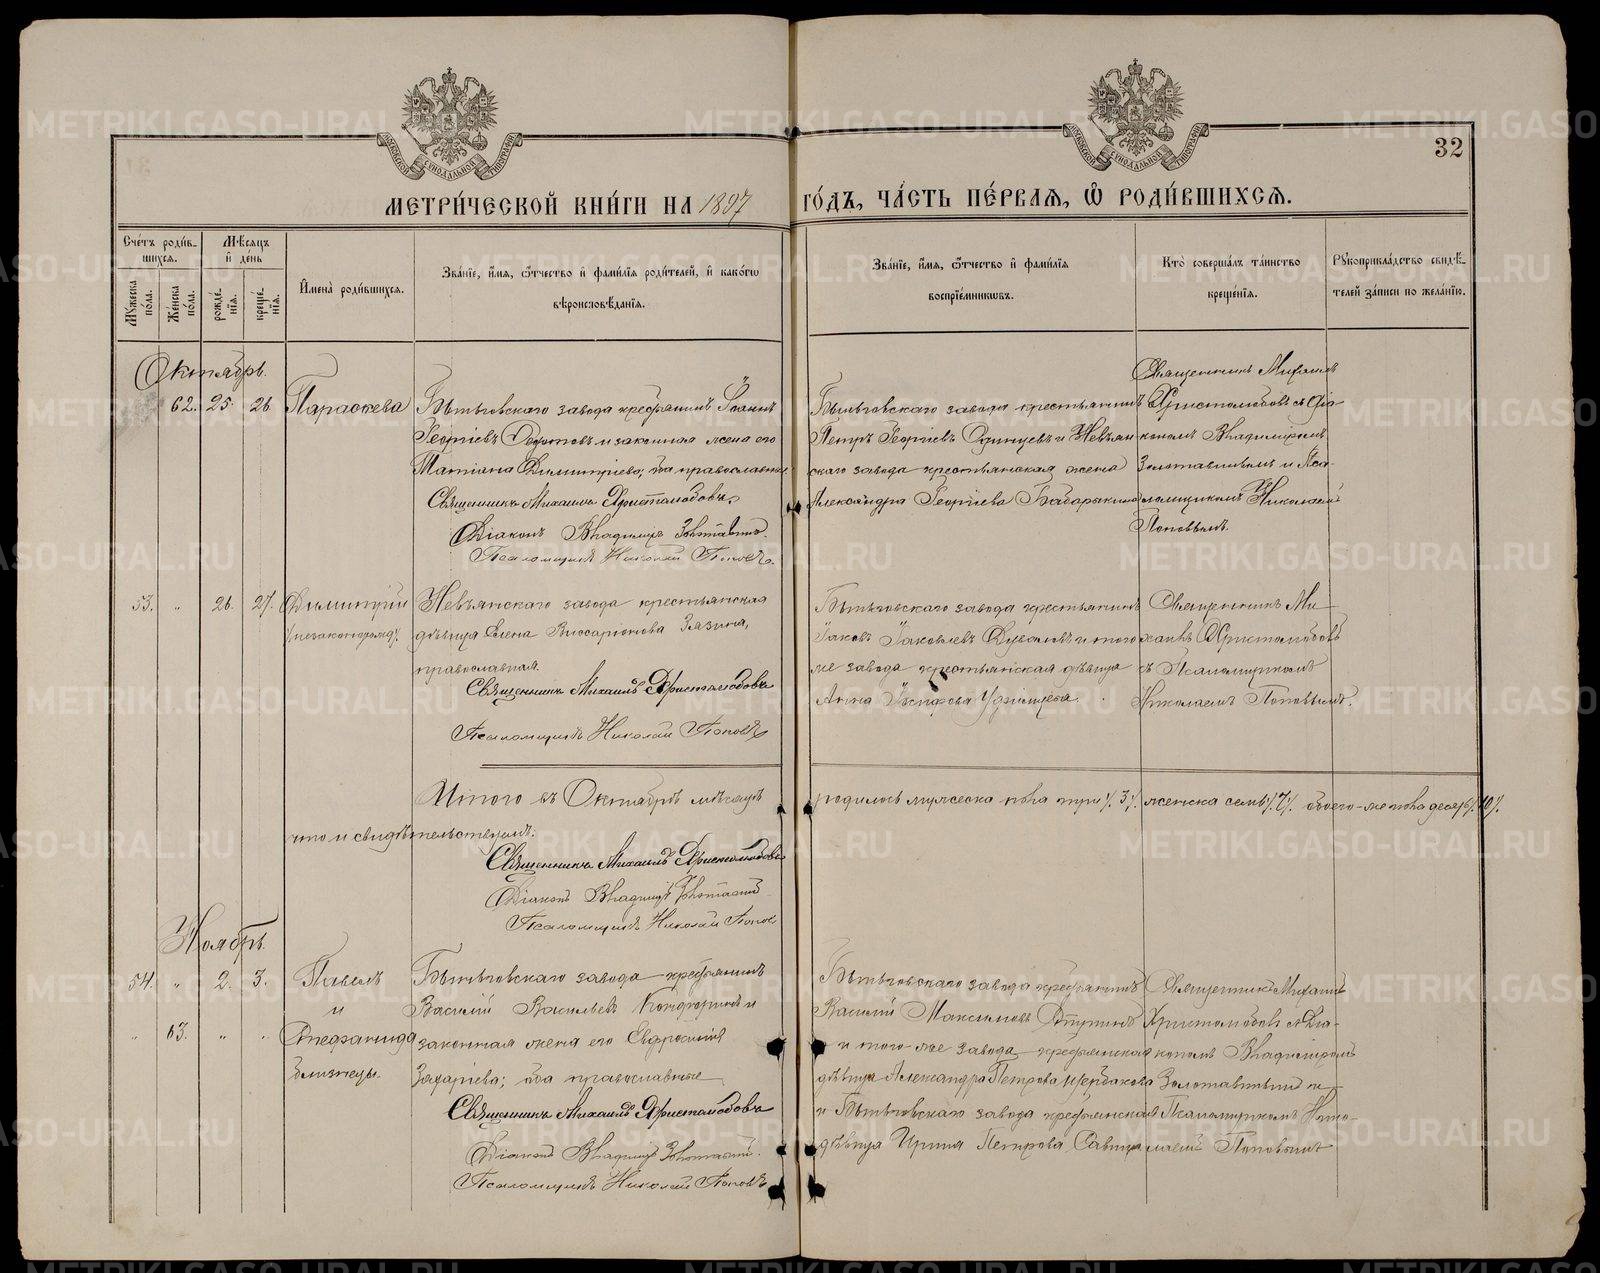 32
МЕТРИ́ЧЕСКОЙ КНИ́ГИ НА 1897 ГО́ДЪ, ЧА́СТЬ ПЕ́РВАЯ, Ѡ РОДИ́ВШИХСЯ.
Сче́тъ роди́в-
шихся.
Мѣ́сяцъ
и҆ де́нь
Му́жеска по́ла.
Же́нска по́ла.
рожде́-
нїя.
креще́-
нїя.
И҆мена̀ роди́вшихся.
Зва́нїе, и҆́мя, ѻ҆́тчество и҆ фами́лїя роди́телей, и҆ како́гѡ
вѣроисповѣ́данїя.
Зва́нїе, и҆́мя, ѻ҆́тчество и҆ фами́лїя
воспрїе́мникѡвъ.
Кто̀ соверша́лъ та́инство
креще́нїя.
Рꙋкоприкла́дство свидѣ́-
телей за́писи по жела́нїю.
Октябрь.
62. 25. 26. Параскева
Бытьговскаго завода крестьянинъ Іоаннъ
Георгіевъ Федотовъ и законная жена его
Татіана Димитріева; оба православные
Священникъ Михаилъ Христолюбовъ.
Діаконъ Владиміръ Золотавинъ.
Псаломщикъ Николай Поповъ.
завода крестьянинъ
Петръ Георгіевъ Одинцевъ и Невьян
скаго завода крестьянская жена
Александра Георгіева
Священникъ Михаилъ
Христолюбовъ съ Діа-
кономъ Владиміромъ
Золотавинымъ и Пса-
ломщикомъ Николаемъ
Поповымъ.
53. " 26. 27. Димитрій
(незаконорожд).
Невьянскаго завода крестьянская
дѣвица Елена Виссаріонова Зязина,
православная.
Священникъ Михаилъ Христолюбовъ
Псаломщикъ Николай Поповъ
завода крестьянинъ
Іаковъ Іаковлевъ и того
же завода крестьянская дѣвица
Анна Уфимцева.
Священникъ Ми-
хаилъ Христолюбовъ
съ Псаломщикомъ
Николаемъ Поповымъ.
Итого въ Октябрѣ мѣсяцѣ родилось мужеска пола три /3/, женска семь /7/, обоего-же пола десять /10/,
что и свидѣтельствуемъ:
Священникъ Михаилъ Христолюбовъ
Діаконъ Владиміръ Золотавинъ
Псаломщикъ Николай Поповъ
Ноябрь.
54. " 2. 3. Павелъ
и
" 63. " " Стефанида
близнецы.
завода крестьянинъ
Василій Васильевъ и
законная жена его Евфросинія
Захаріева; оба православные
Священникъ Михаилъ Христолюбовъ
Діаконъ Владиміръ Золотавинъ.
Псаломщикъ Николай Поповъ
завода крестьянинъ
Василій Максимовъ
и того-же завода крестьянская
дѣвица Александра Петрова Щербакова
и завода крестьянская
дѣвица Ирина Петрова
Священникъ Михаилъ
Христолюбовъ съ Діа-
кономъ Владиміромъ
Золотавинымъ и
Псаломщикомъ Нико-
лаемъ Поповымъ
METRIKI.GASO-URAL.RU